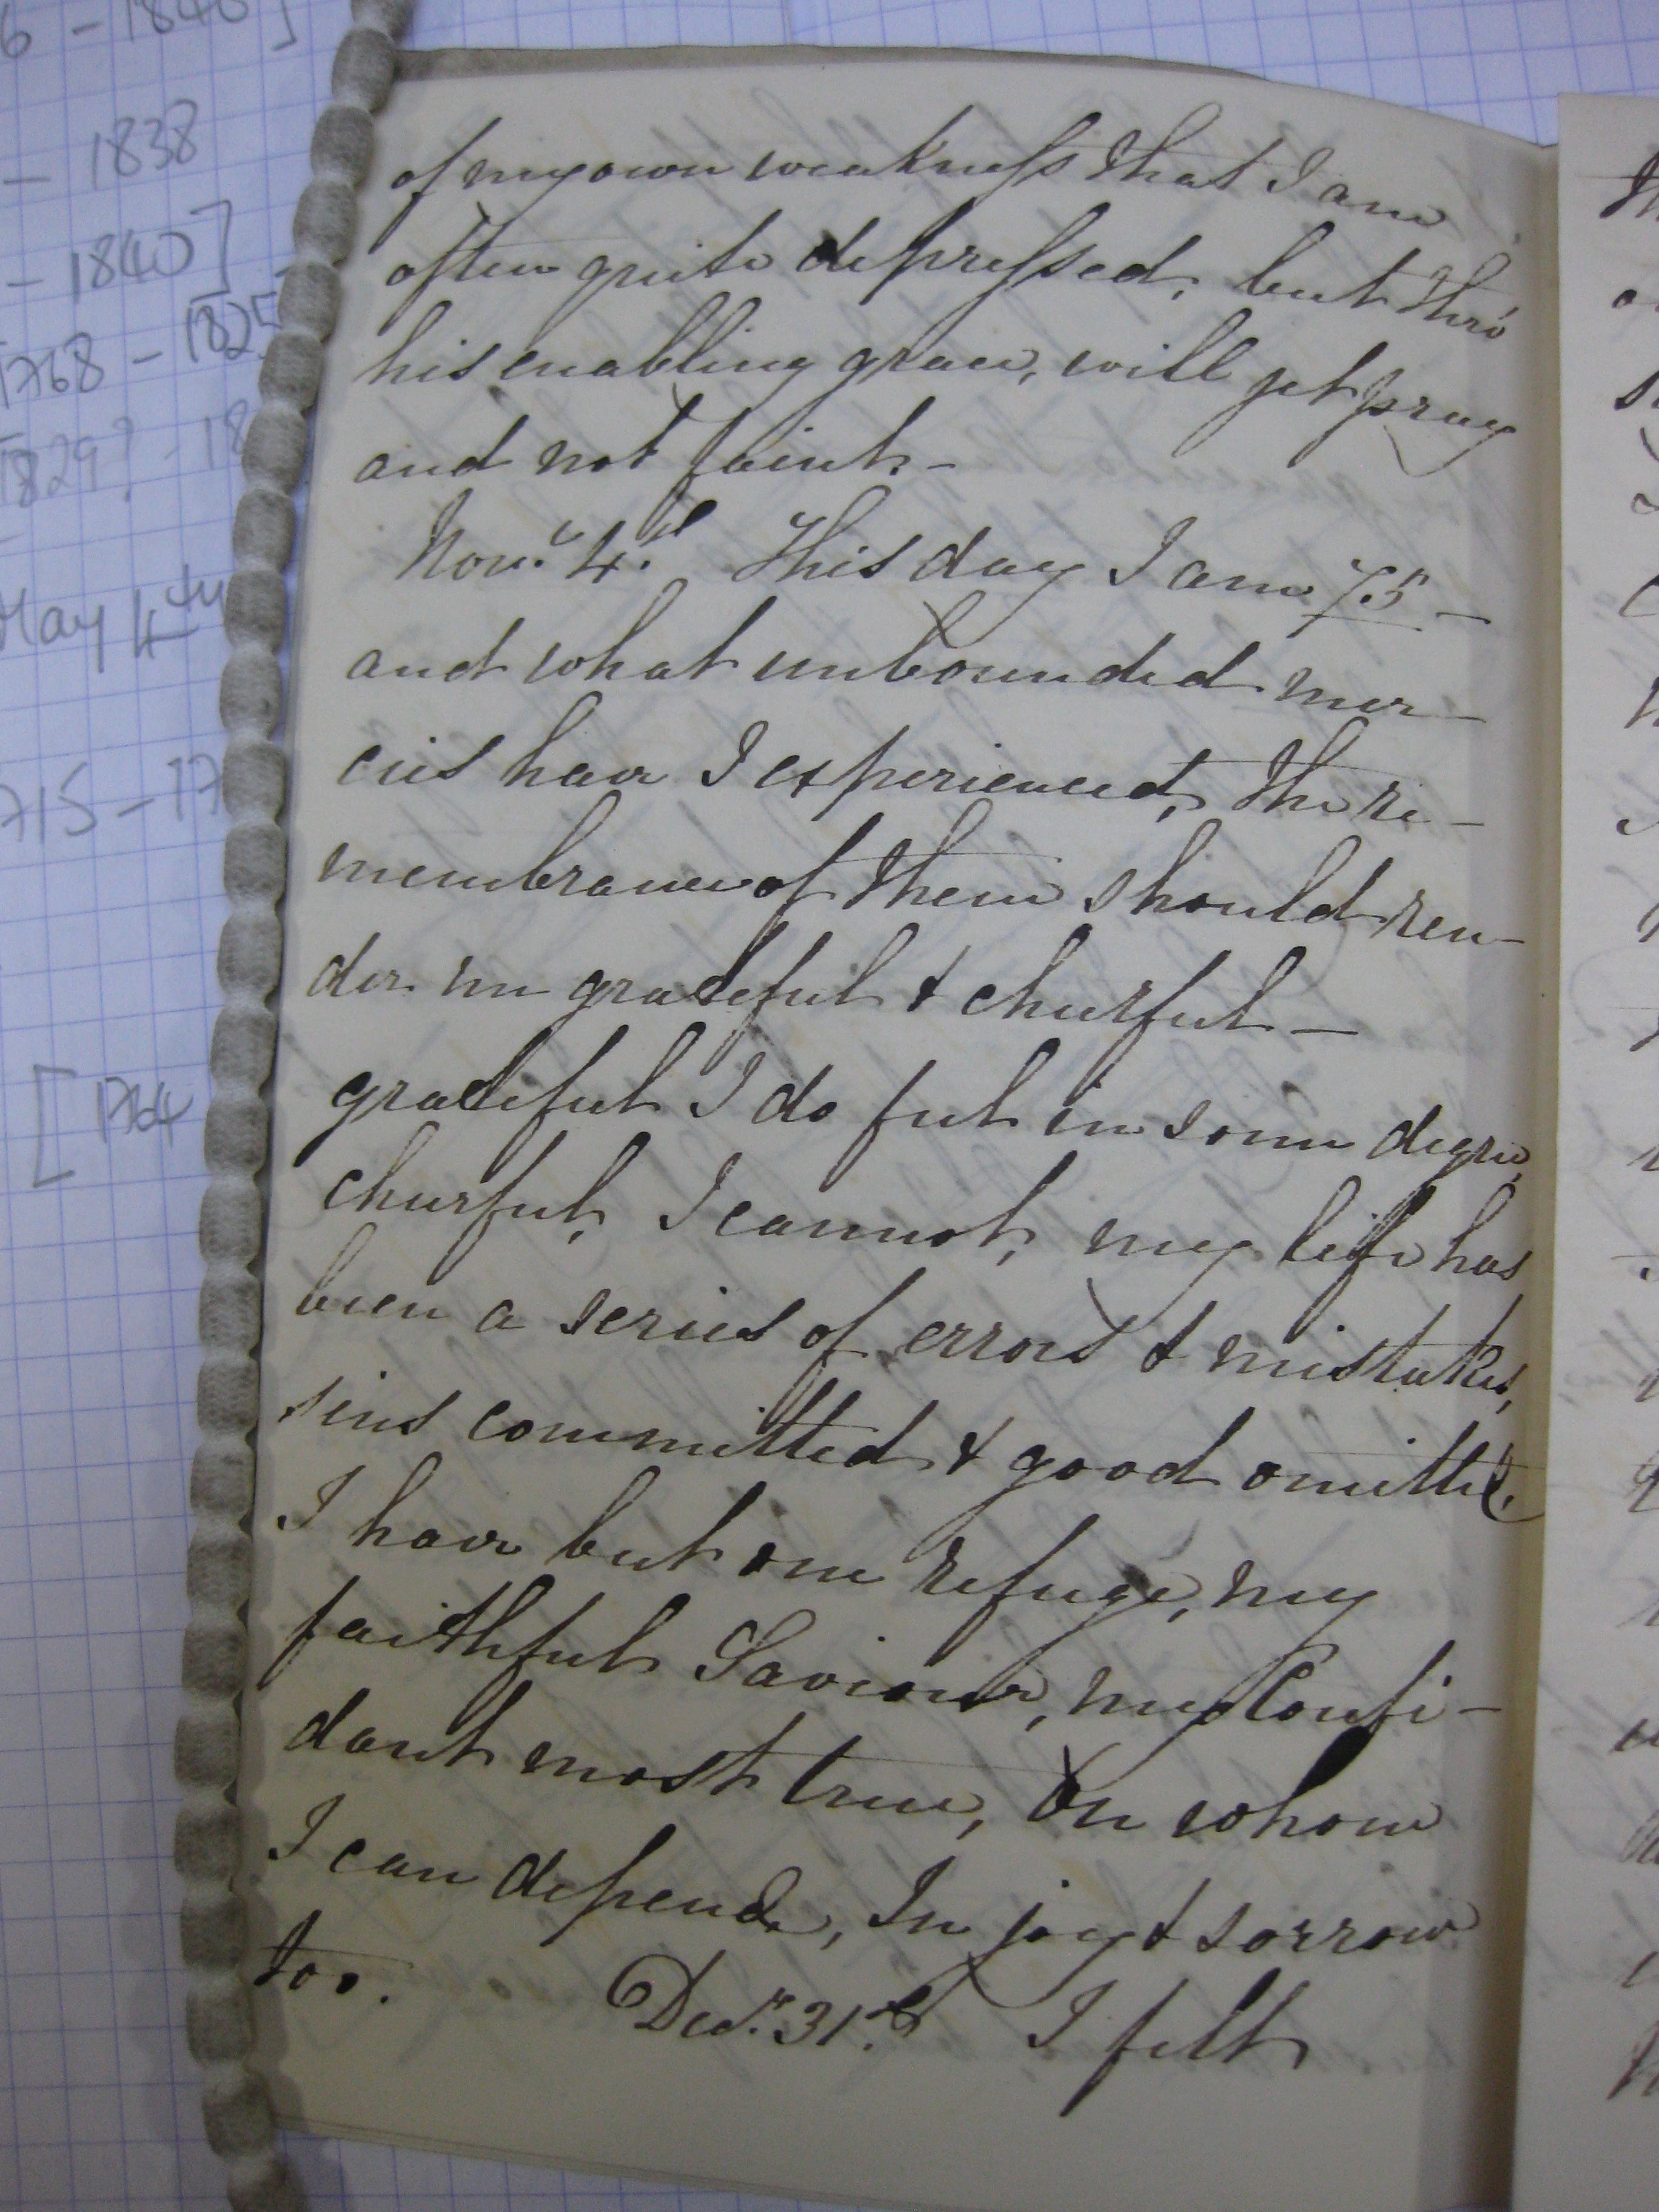 6 - 1840]
- 1838
- 1840]
1768 - 1825
1829? - 18
May 4th
715 - 17
[1764
of my own weakness that I am
often quite depressed, but thro'
his enabling grace, will yet pray
and not faint -
Novr. 4th This day I am 75 -
and what unbounded mer-
cies have I experienced, the re-
membrance of them should ren-
der me grateful & cheerful -
grateful I do feel in some degree
cheerful, I cannot, my life has
been a series of errors & mistakes,
sins committed & good omitted.
I have but one refuge, my
faithful Saviour, my Confi-
dant most true, On whom
I can depend, In joy & sorrow
too. Decr. 31st I felt